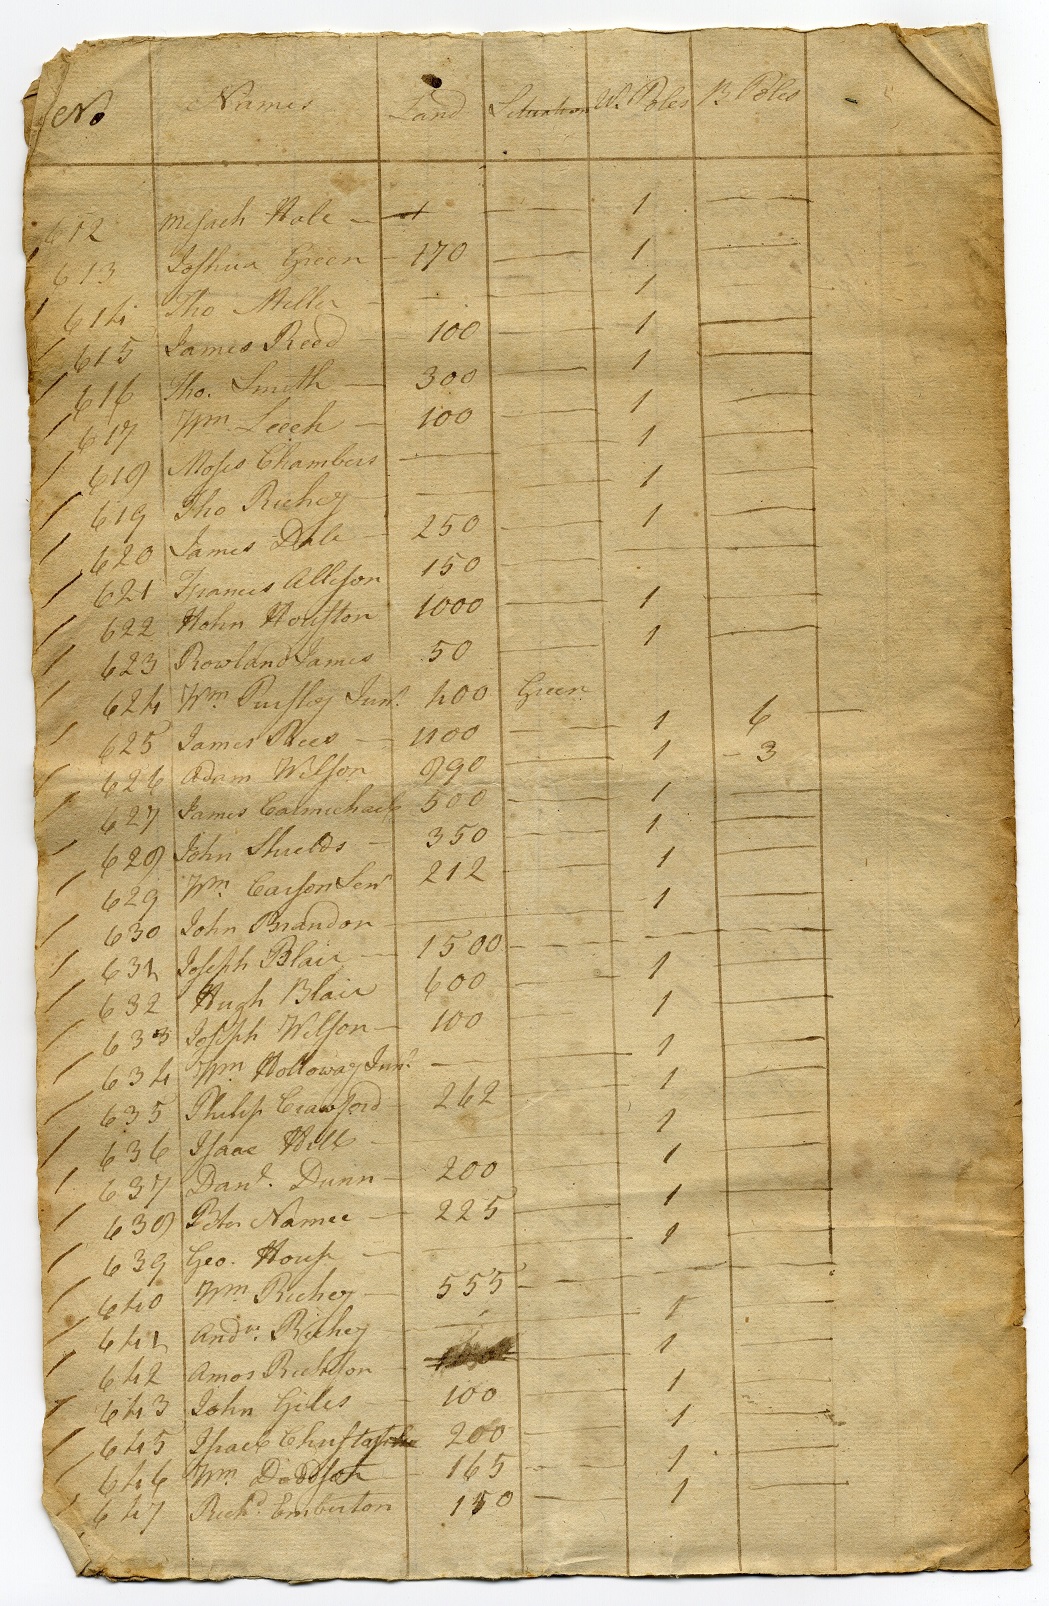 No Names Land Situation W. Poles B Poles
612 Mesach Hale — 1
613 Joshua Green — 170 — 1 —
614 Tho Miller — — 1
615 James Reed — 100 — 1 —
616 Tho. Smith — 300 — 1 —
617 Wm. Leech — 100 — 1 —
618 Moses Chambers — 1 —
619 Tho Richey — — 1 —
620 James Dale — 250 — 1 —
621 Francis Allison 150 — —
622 John Houston 1000 — 1 —
623 Rowland James 50 — 1 —
624 Wm Pursley Junr. 400 Green
625 James Rees — 1100 — 1 6 —
626 Adam Wilson 990 — 1 - 3
627 James Carmichael 500 — 1 —
628 John Shields — 350 — 1 —
629 Wm. Carson Senr 212 — 1 —
630 John Brandon — — 1 —
631 Joseph Blair — 1500 — —
632 Hugh Blair 600 — 1 —
633 Joseph Wilson — 100 — 1 —
634 Wm Holloway Junr. — 1 —
635 Philip Crawford 262 — 1 —
636 Isaac Hill — 1
637 Danl. Dunn — 200 — 1 —
638 Peter Namee — 225 — 1 —
639 Geo. House — — 1 —
640 Wm. Richey — 555 — —
641 Andw. Richey — — 1 —
642 Amos — 1 —
643 John Giles — 100 — 1 —
645 200 — 1 —
646 Wm. Dodson 165 — 1 —
647 Richd. Emberton 150 — 1 —